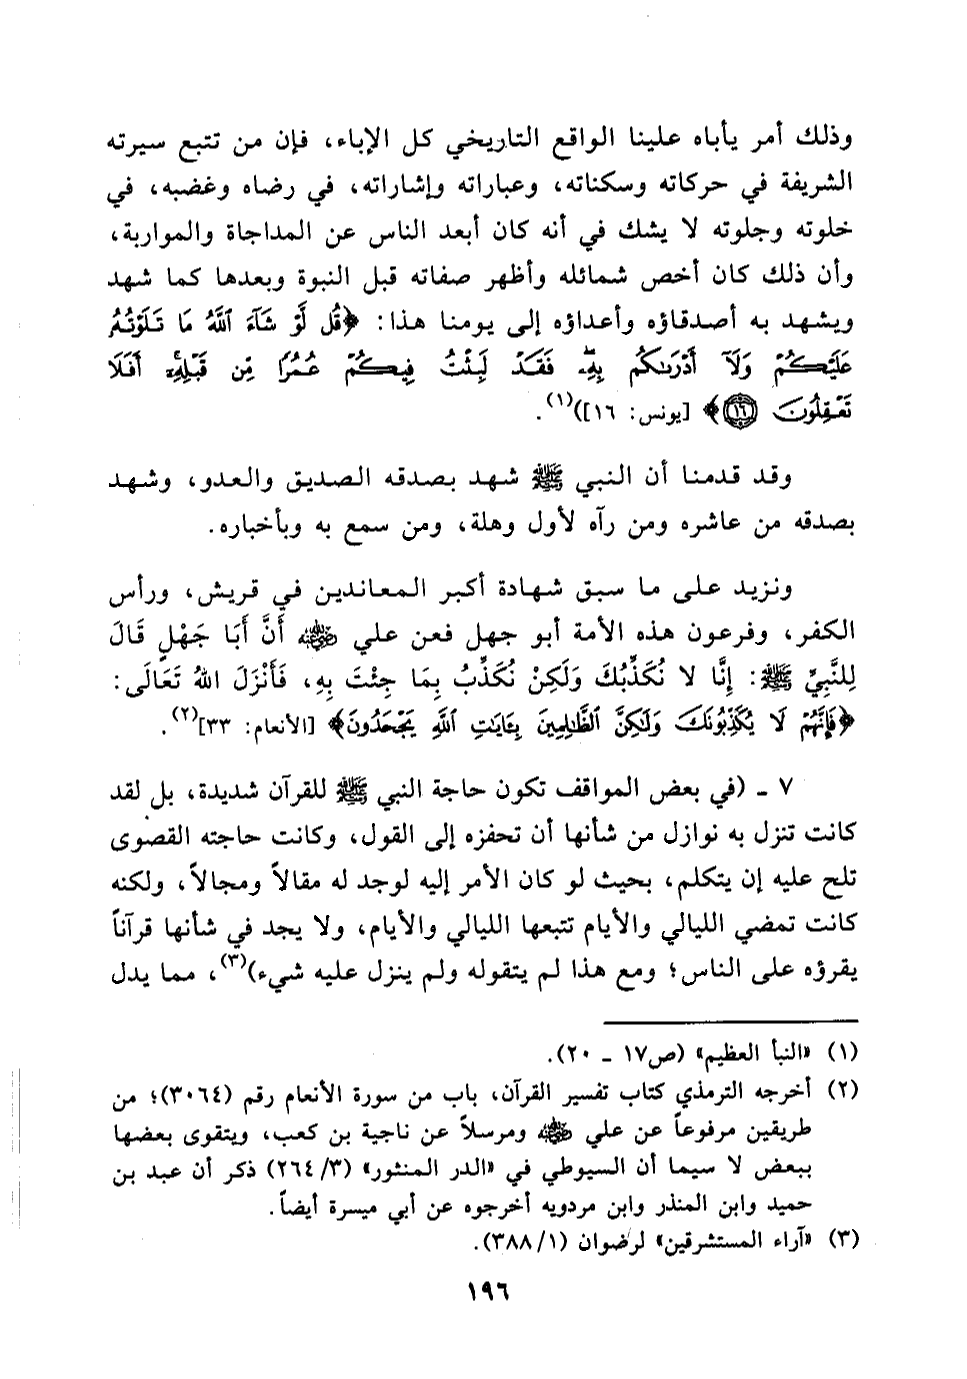 وذلك أمر يأباه علينا الواقع التاريخي كل الإباء، فإن من تتبع سيرته
الشريفة في حركاته وسكناته، وعباراته وإشاراته، في رضاه وغضبه، في
خلوته وجلوته لا يشك في أنه كان أبعد الناس عن المداجاة والمواربة،
وأن ذلك كان أخص شمائله وأظهر صفاته قبل النبوة وبعدها كما شهد
ويشهد به أصدقاؤه وأعداؤه إلى يومنا هذا: ﴿قُل لَّوْ شَآءَ ٱللَّهُ مَا تَلَوْتُهُۥ
عَلَيْكُمْ وَلَآ أَدْرَىٰكُم بِهِۦ ۖ فَقَدْ لَبِثْتُ فِيكُمْ عُمُرًا مِّن قَبْلِهِۦٓ ۚ أَفَلَا
تَعْقِلُونَ ﴿١٦﴾﴾ [يونس: ١٦])(١).
وقد قدمنا أن النبي ﷺ شهد بصدقه الصديق والعدو، وشهد
بصدقه من عاشره ومن رآه لأول وهلة، ومن سمع به وبأخباره.
ونزيد على ما سبق شهادة أكبر المعاندين في قريش، ورأس
الكفر، وفرعون هذه الأمة أبو جهل فعن علي رضي الله عنه أَنَّ أَبَا جَهْلٍ قَالَ
لِلنَّبِيِّ ﷺ: إِنَّا لا نُكَذِّبُكَ وَلَكِنْ نُكَذِّبُ بِمَا جِئْتَ بِهِ، فَأَنْزَلَ اللهُ تَعَالَى:
﴿فَإِنَّهُمْ لَا يُكَذِّبُونَكَ وَلَٰكِنَّ ٱلظَّٰلِمِينَ بِـَٔايَٰتِ ٱللَّهِ يَجْحَدُونَ﴾ [الأنعام: ٣٣](٢).
٧ ـ (في بعض المواقف تكون حاجة النبي ﷺ للقرآن شديدة، بل لقد
كانت تنزل به نوازل من شأنها أن تحفزه إلى القول، وكانت حاجته القصوى
تلح عليه إن يتكلم، بحيث لو كان الأمر إليه لوجد له مقالاً ومجالاً، ولكنه
كانت تمضي الليالي والأيام تتبعها الليالي والأيام، ولا يجد في شأنها قرآناً
يقرؤه على الناس؛ ومع هذا لم يتقوله ولم ينزل عليه شيء)(٣)، مما يدل
(١) «النبأ العظيم» (ص١٧ ـ ٢٠).
(٢) أخرجه الترمذي كتاب تفسير القرآن، باب من سورة الأنعام رقم (٣٠٦٤)؛ من
طريقين مرفوعاً عن علي رضي الله عنه ومرسلاً عن ناجية بن كعب، ويتقوى بعضها
ببعض لا سيما أن السيوطي في «الدر المنثور» (٣/٢٦٤) ذكر أن عبد بن
حميد وابن المنذر وابن مردويه أخرجوه عن أبي ميسرة أيضاً.
(٣) «آراء المستشرقين» لرضوان (١/٣٨٨).
١٩٦